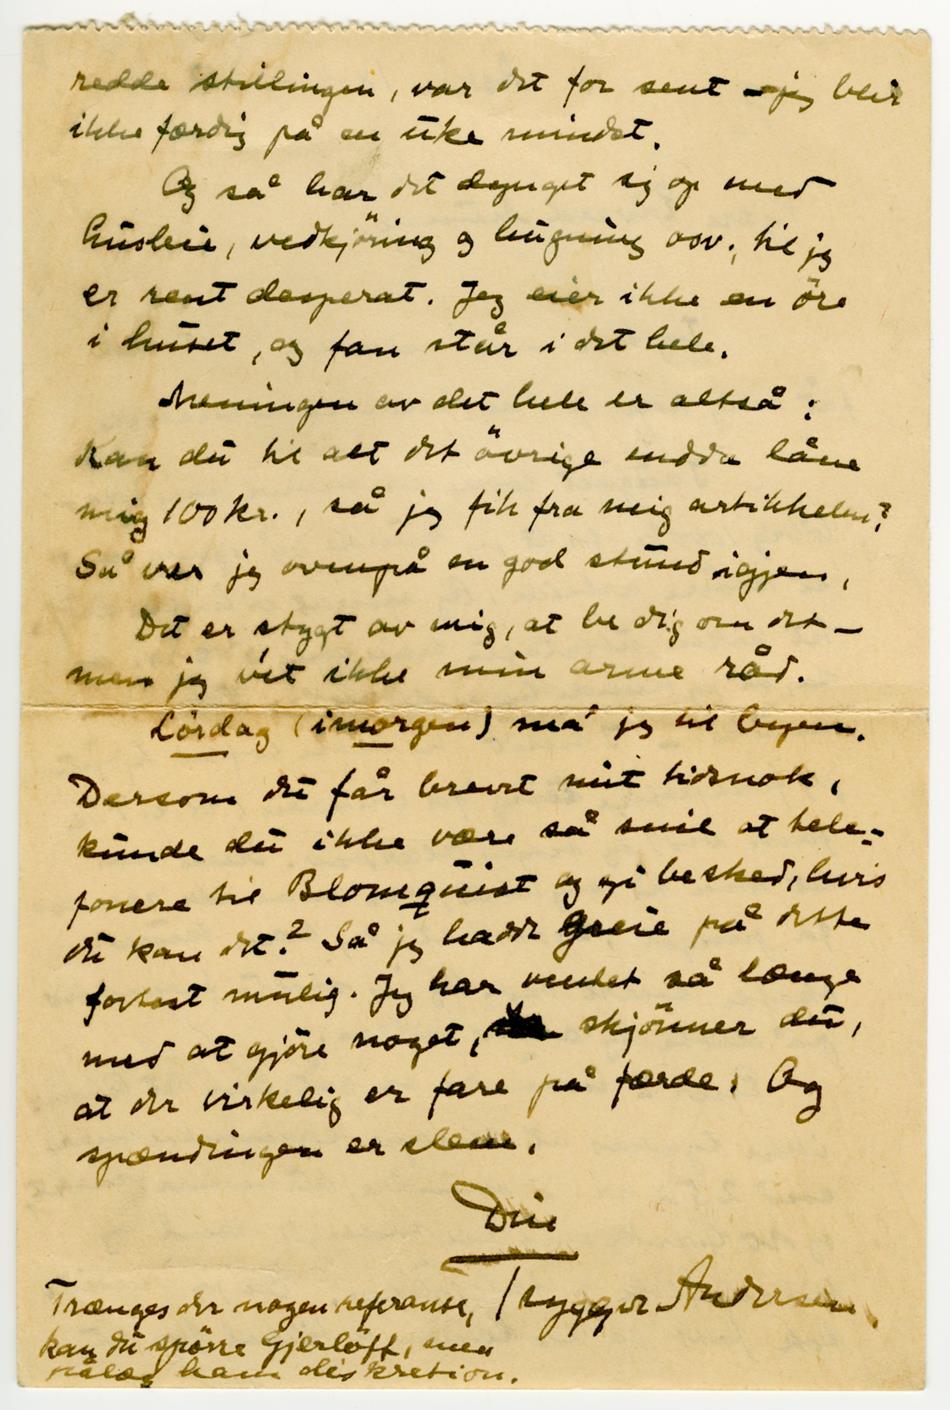 redde stillingen, var det for sent – jeg blir
ikke færdig på en uke mindst.
Og så har det dynget sig op med
husleie, vedkjöring og hugning osv., til jeg
er rent desperat. Jeg eier ikke en öre
i huset, og fan står i det hele.
Meningen av det hele er altså:
Kan du til alt det övrige endda låne
mig 100 kr., så jeg fik fra mig artikkelen?
Så var jeg ovenpå en god stund igjen.
Det er stygt av mig, at be dig om det –
men jeg vét ikke min arme råd.
Lördag (imorgen) må jeg til byen.
Dersom du får brevet mit tidsnok,
kunde du ikke være så snil at tele-
fonere til Blomquist og gi besked, hvis
du kan det? Så jeg hadde greie på dette
fortest mulig. Jeg har ventet så længe
med at gjöre noget, skjönner du,
at der virkelig er fare på færde. Og
spændingen er slem.
Din
Trygve Andersen.
Trænges der nogen referanse,
kan du spörre Gjerlöff, men
pålæg ham diskretion.